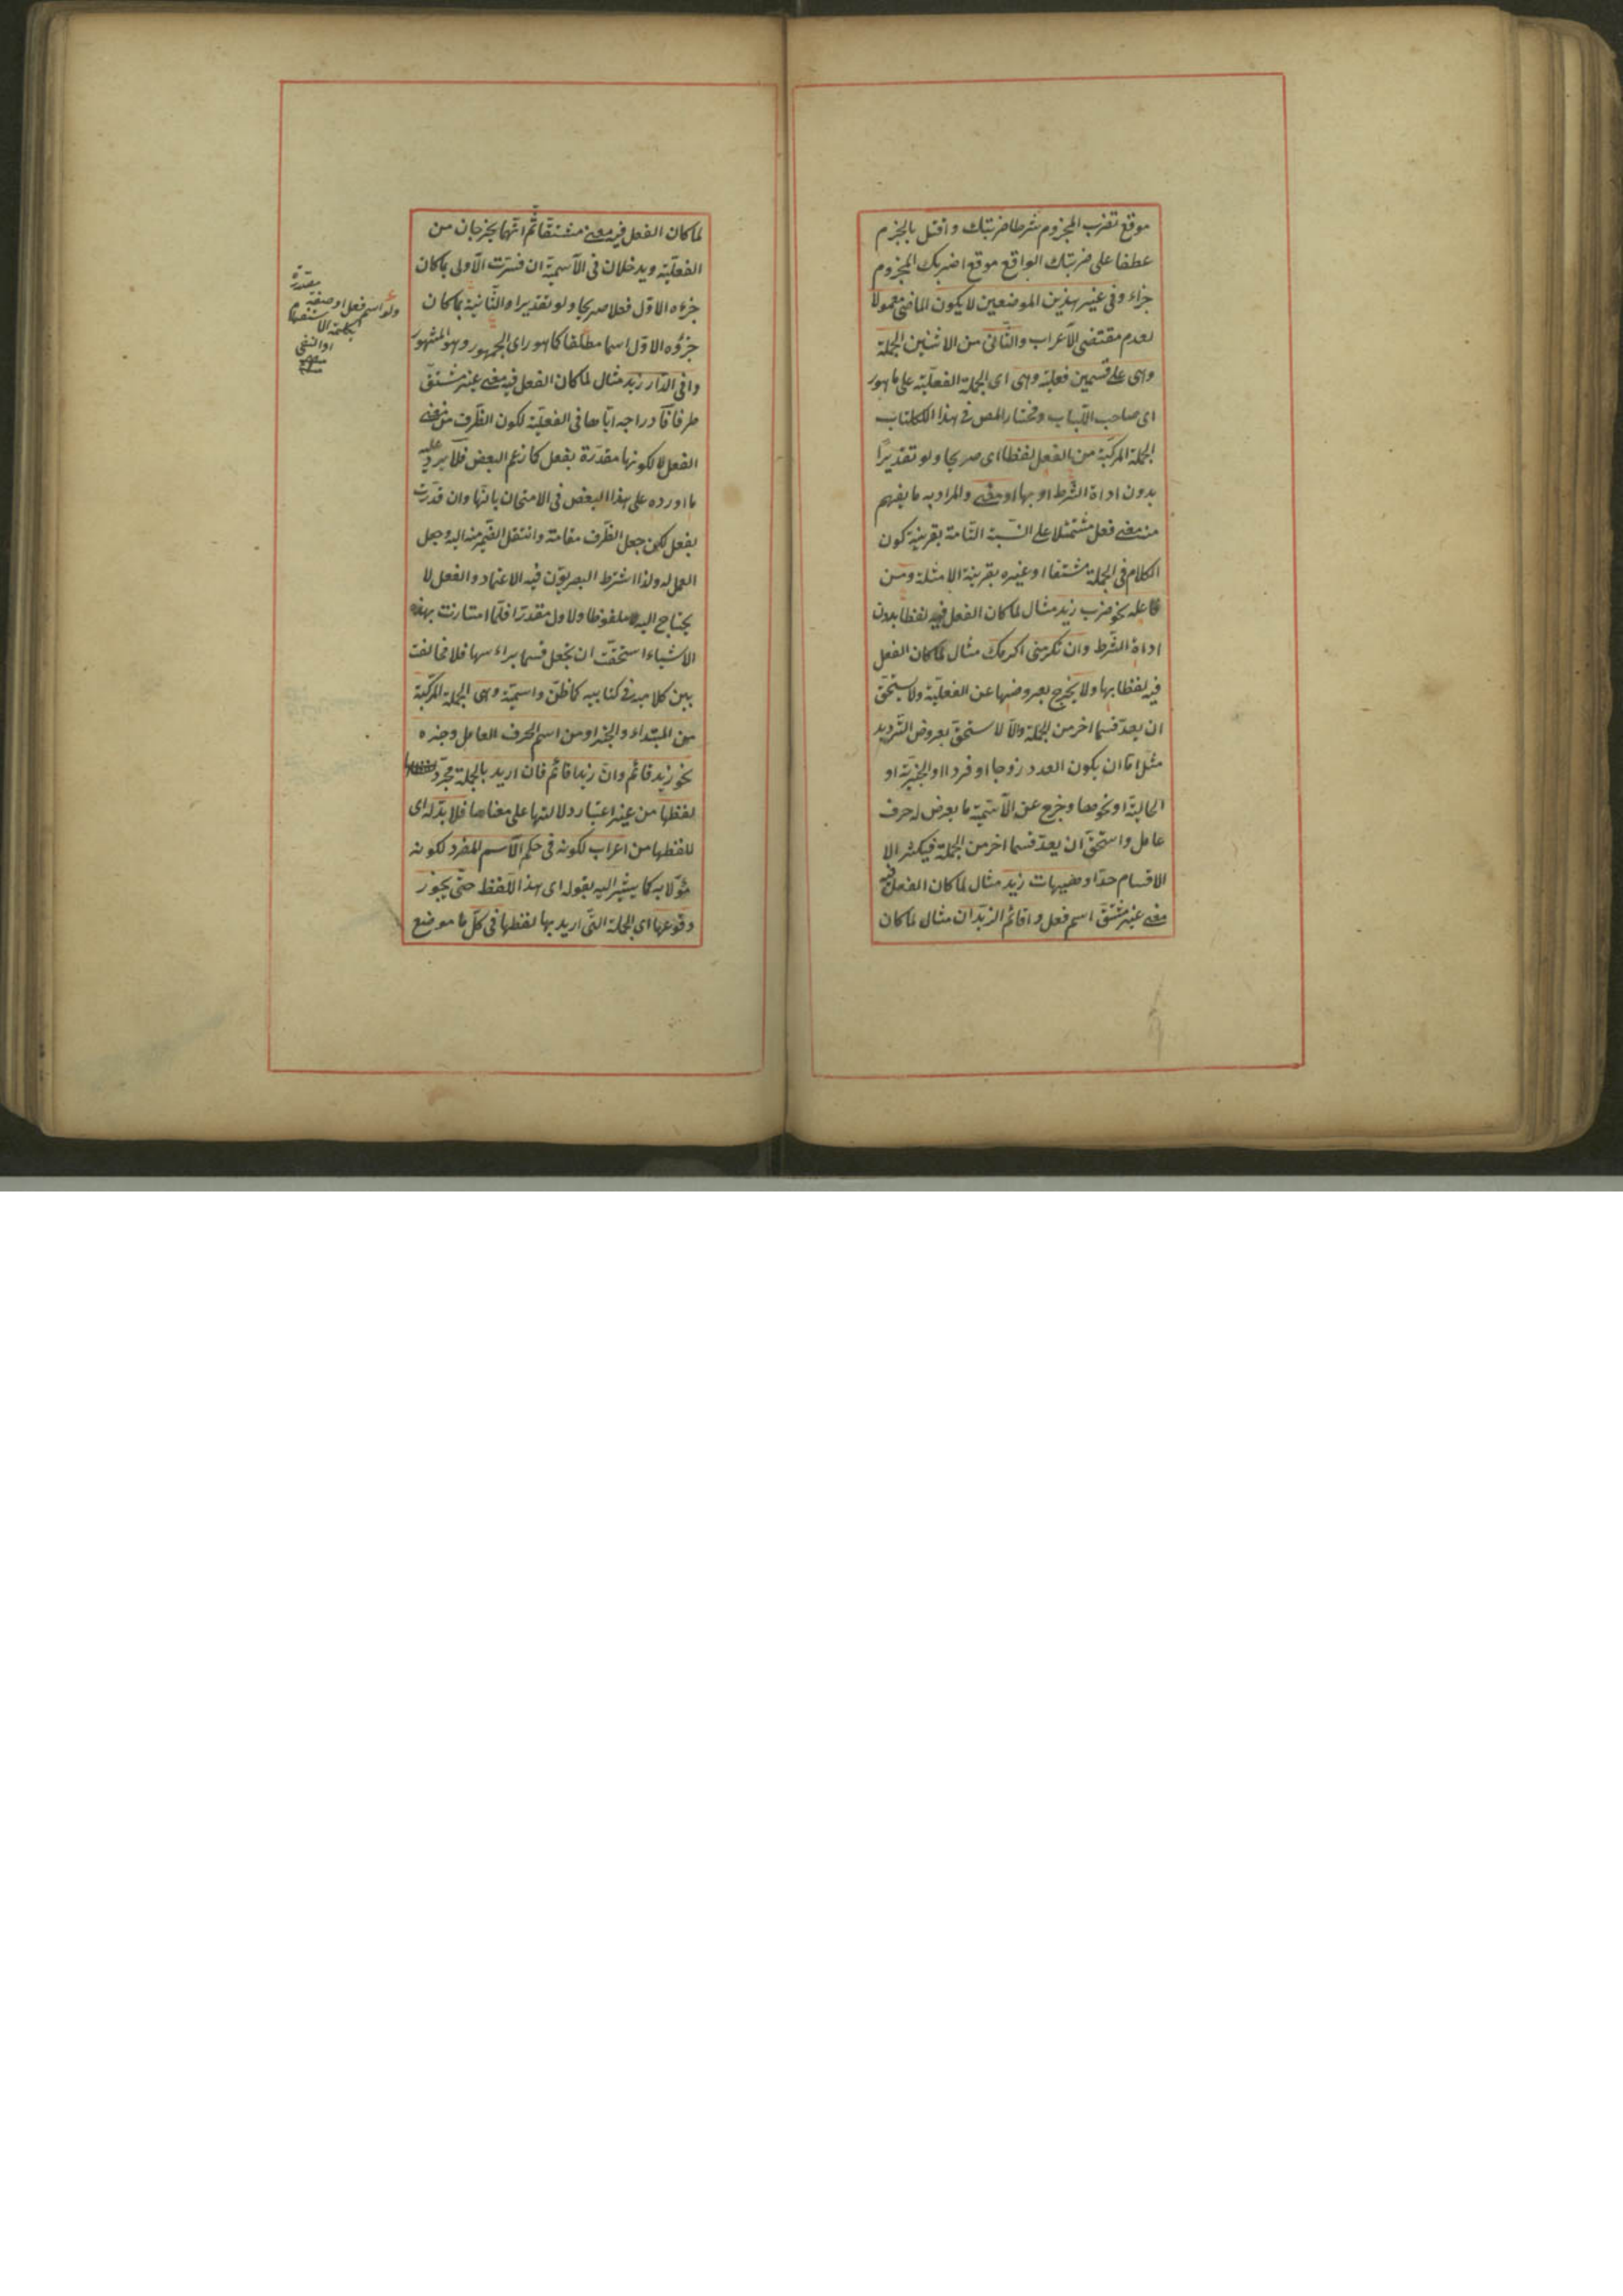 موقع تضرب المجزوم شرطا ضربتك واقتل بالجزم
عطفا على ضربتك الواقع موقع اضربك المجزوم
جزاء وفى غير هذين الموضعين لا يكون الماضى معمولا
لعدم مقتضى الاعراب والثانى من الاثنين الجملة
وهى على قسمين فعلية وهى اى الجملة الفعلية على ما هو
اى صاحب اللباب ومختار المص فى هذا الكتاب
الجملة المركبة من الفعل لفظا اى صريحا ولو تقديرا
بدون اداة الشرط او بها او معنى والمراد به ما يفهم
منه معنى فعل مشتملا على النسبة التامة بقرينة كون
الكلام فى الجملة مشتقا او غيره بقرينة الامثلة ومن
فاعله نحو ضرب زيد مثال لما كان الفعل فيه لفظا بدون
اداة الشرط وان تكرمنى اكرمك مثال لما كان الفعل
فيه لفظا بها ولا يخرج بعروضها عن الفعلية ولا يستحق
ان يعد قسما اخر من الجملة والا لاستحق بعروض الترديد
مثل اما ان يكون العدد زوجا او فردا او الخبرية او
الحالية او نحوهما وخرج عن الاسمية ما يعرض له حرف
عامل واستحق ان يعد قسما اخر من الجملة فيكثر الا
الاقسام جدا وهيهات زيد مثال لما كان الفعل فيه
معنى غير مشتق اسم فعل واقائم الزيدان مثال لما كان
لما كان الفعل فيه معنى مشتقا ثم انهما يخرجان من
الفعلية ويدخلان فى الاسمية ان فسرت الاولى بما كان
جزءه الاول فعلا صريحا ولو تقديرا والثانية بما كان
جزؤه الاول اسما مطلقا كما هو راى الجمهور وهو المشهور
وافى الدار زيد مثال لما كان الفعل فيه معنى غير مشتق
ظرفا فادراجه اياهما فى الفعلية لكون الظرف من معنى
الفعل لا لكونها مقدرة بفعل كما زعم البعض فلا يرد عليه
ما اورده على هذا البعض فى الامتحان بانها وان قدرت
بفعل لكن جعل الظرف مقامه وانتقل الضمير منه اليه وجعل
العمل له ولذا اشترط البصريون فيه الاعتماد والفعل لا
يحتاج اليه لا ملفوظا ولا مقدرا فلما امتازت بهذه
الاشياء استحقت ان تجعل قسما براءسها فلا مخالفة
بين كلاميه فى كتابيه كما ظن واسمية وهى الجملة المركبة
من المبتداء والخبر او من اسم الحرف العامل وخبره
نحو زيد قائم وان زيدا قائم فان اريد بالجملة مجرد
لفظها من غير اعتبار دلالتها على معناها فلا بد له اى
للفظها من اعراب لكونه فى حكم الاسم المفرد لكونه
مؤلا به كما يشير اليه بقوله اى هذا اللفظ حتى يجوز
وقوعها اى الجملة التى اريد بها لفظها فى كل ما موضع
مقدرة
ولو اسم فعل او صفة
بكلمة الاستفهام
او النفى